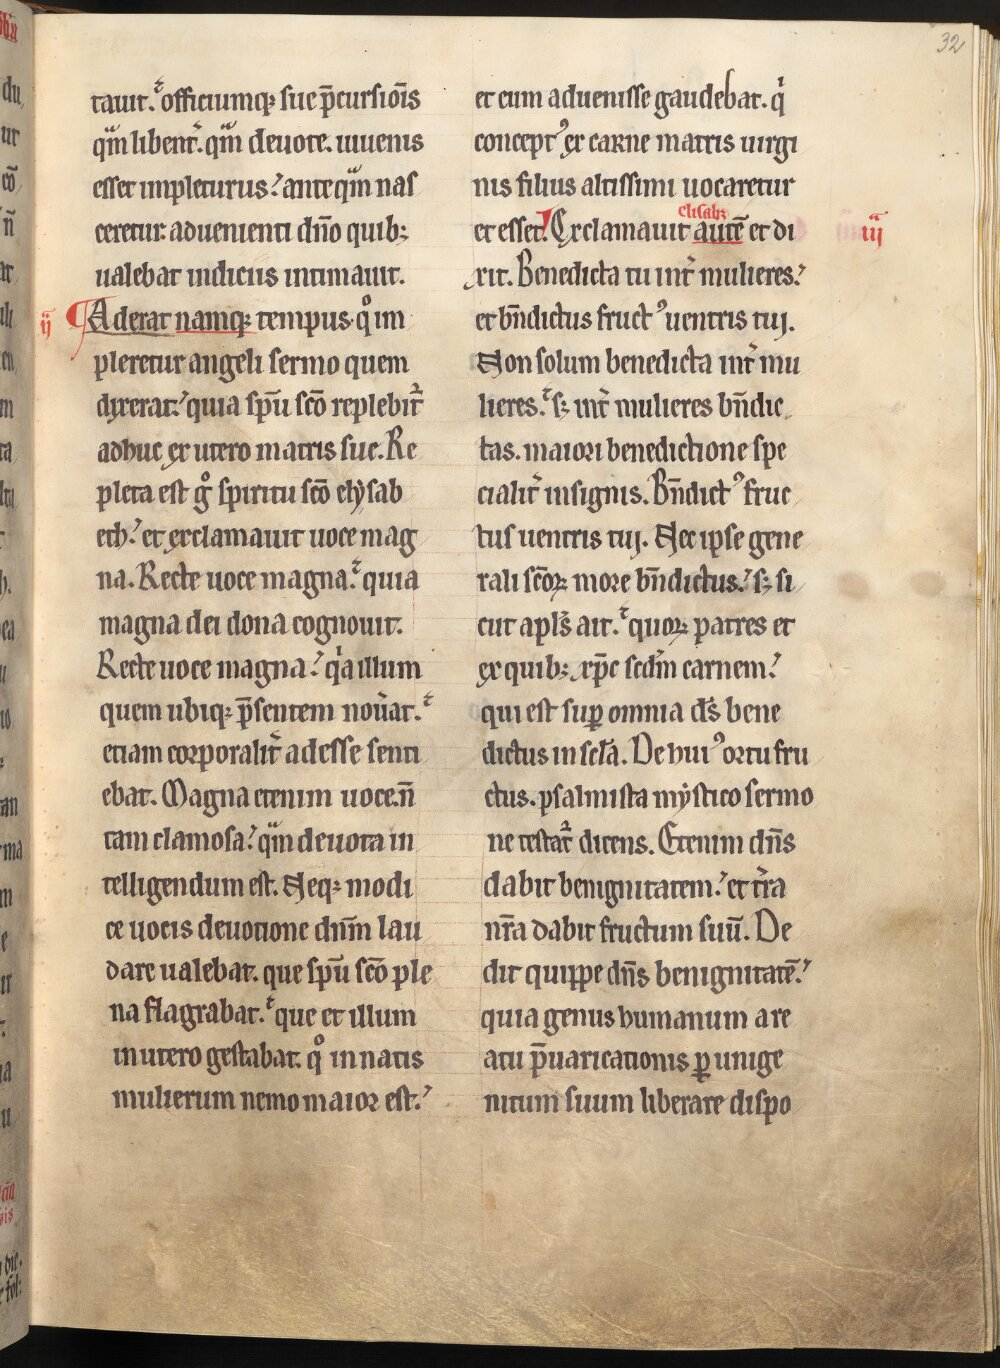 32
tauit. officiumq; sue p̄cursiōis
qͣm libent᷑. qͣm deuote. iuuenis
esset impleturus? anteqͣm nas
ceretur. aduenienti dn̄o quib;
ualebat indiciis intimauit.
ij
¶Aderat namq; tempus. qͦ im
pleretur angeli sermo quem
dixerat? quia sp̄u sc̄o replebit᷑
adhuc ex utero matris sue. Re
pleta est gͦ spiritu sc̄o elẏsab
eth? et exclamauit uoce mag
na. Recte uoce magna? quia
magna dei dona cognouit.
Recte uoce magna? qͥa illum
quem ubiq; p̄sentem nou᷑at.
etiam corporalit᷑ adesse senti
ebat. Magna etenim uoce. n̄
tam clamosa? qͣm deuota in
telligendum est. Neq; modi
ce uocis deuotione dn̄m lau
dare ualebat. que sp̄u sc̄o ple
na flagrabat. que et illum
in utero gestabat. qͦ in natis
mulierum nemo maior est?
et cum aduenisse gaudebat. qͥ
conceptꝰ ex carne matris uirgi
nis filius altissimi uocaretur
elisab;
et esset. Exclamauit autē et di
iij
xit. Benedicta tu int᷑ mulieres?
et bn̄dictus fructꝰ uentris tuj.
Non solum benedicta int᷑ mu
lieres. s; int᷑ mulieres bn̄dic
tas. maiori benedictione spe
cialit᷑ insignis. Bn̄dictꝰ fruc
tus uentris tuj. Nec ipse gene
rali sc̄oꝝ more bn̄dictus? s; si
cut apl̄s ait. quoꝝ patres et
ex quib; xp̄c scd̄m carnem?
qui est suꝑ omnia ds̄ bene
dictus in scl̄a. De huiꝰ ortu fru
ctus. psalmista mẏstico sermo
ne testat᷑ dicens. Etenim dn̄s
dabit benignitatem? et t᷑ra
nr̄a dabit fructum suū. De
dit quippe dn̄s benignitatē?
quia genus humanum a re
atu p̄uaricationis ꝑ unige
nitum suum liberare dispo